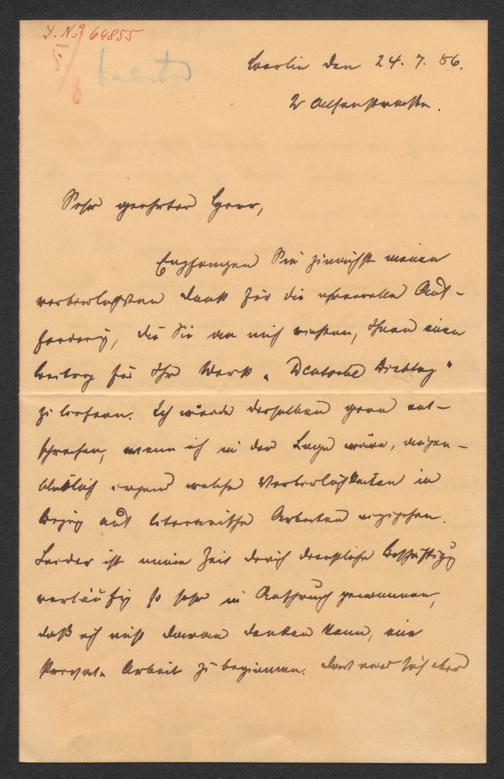 J. N. 64855
5/8
Berlin den 24. 7. 86.
2 Alsenstrasse.
Sehr geehrter Herr,
Empfangen Sie zunächst meinen
verbindlichsten Dank für die ehrenvolle Auf-
forderung, die Sie an mich richten, Ihnen einen
Beitrag für Ihr Werk "Deutsche Dichtung"
zu liefern. Ich würde derselben gern ent-
sprechen, wenn ich in der Lage wäre, augen-
blicklich irgend welche Verbindlichkeiten in
Bezug auf literarische Arbeiten einzugehen.
Leider ist meine Zeit durch dienstliche Beschäftigung
vorläufig so sehr in Anspruch genommen,
daß ich nicht daran denken kann, eine
Privat-Arbeit zu beginnen.